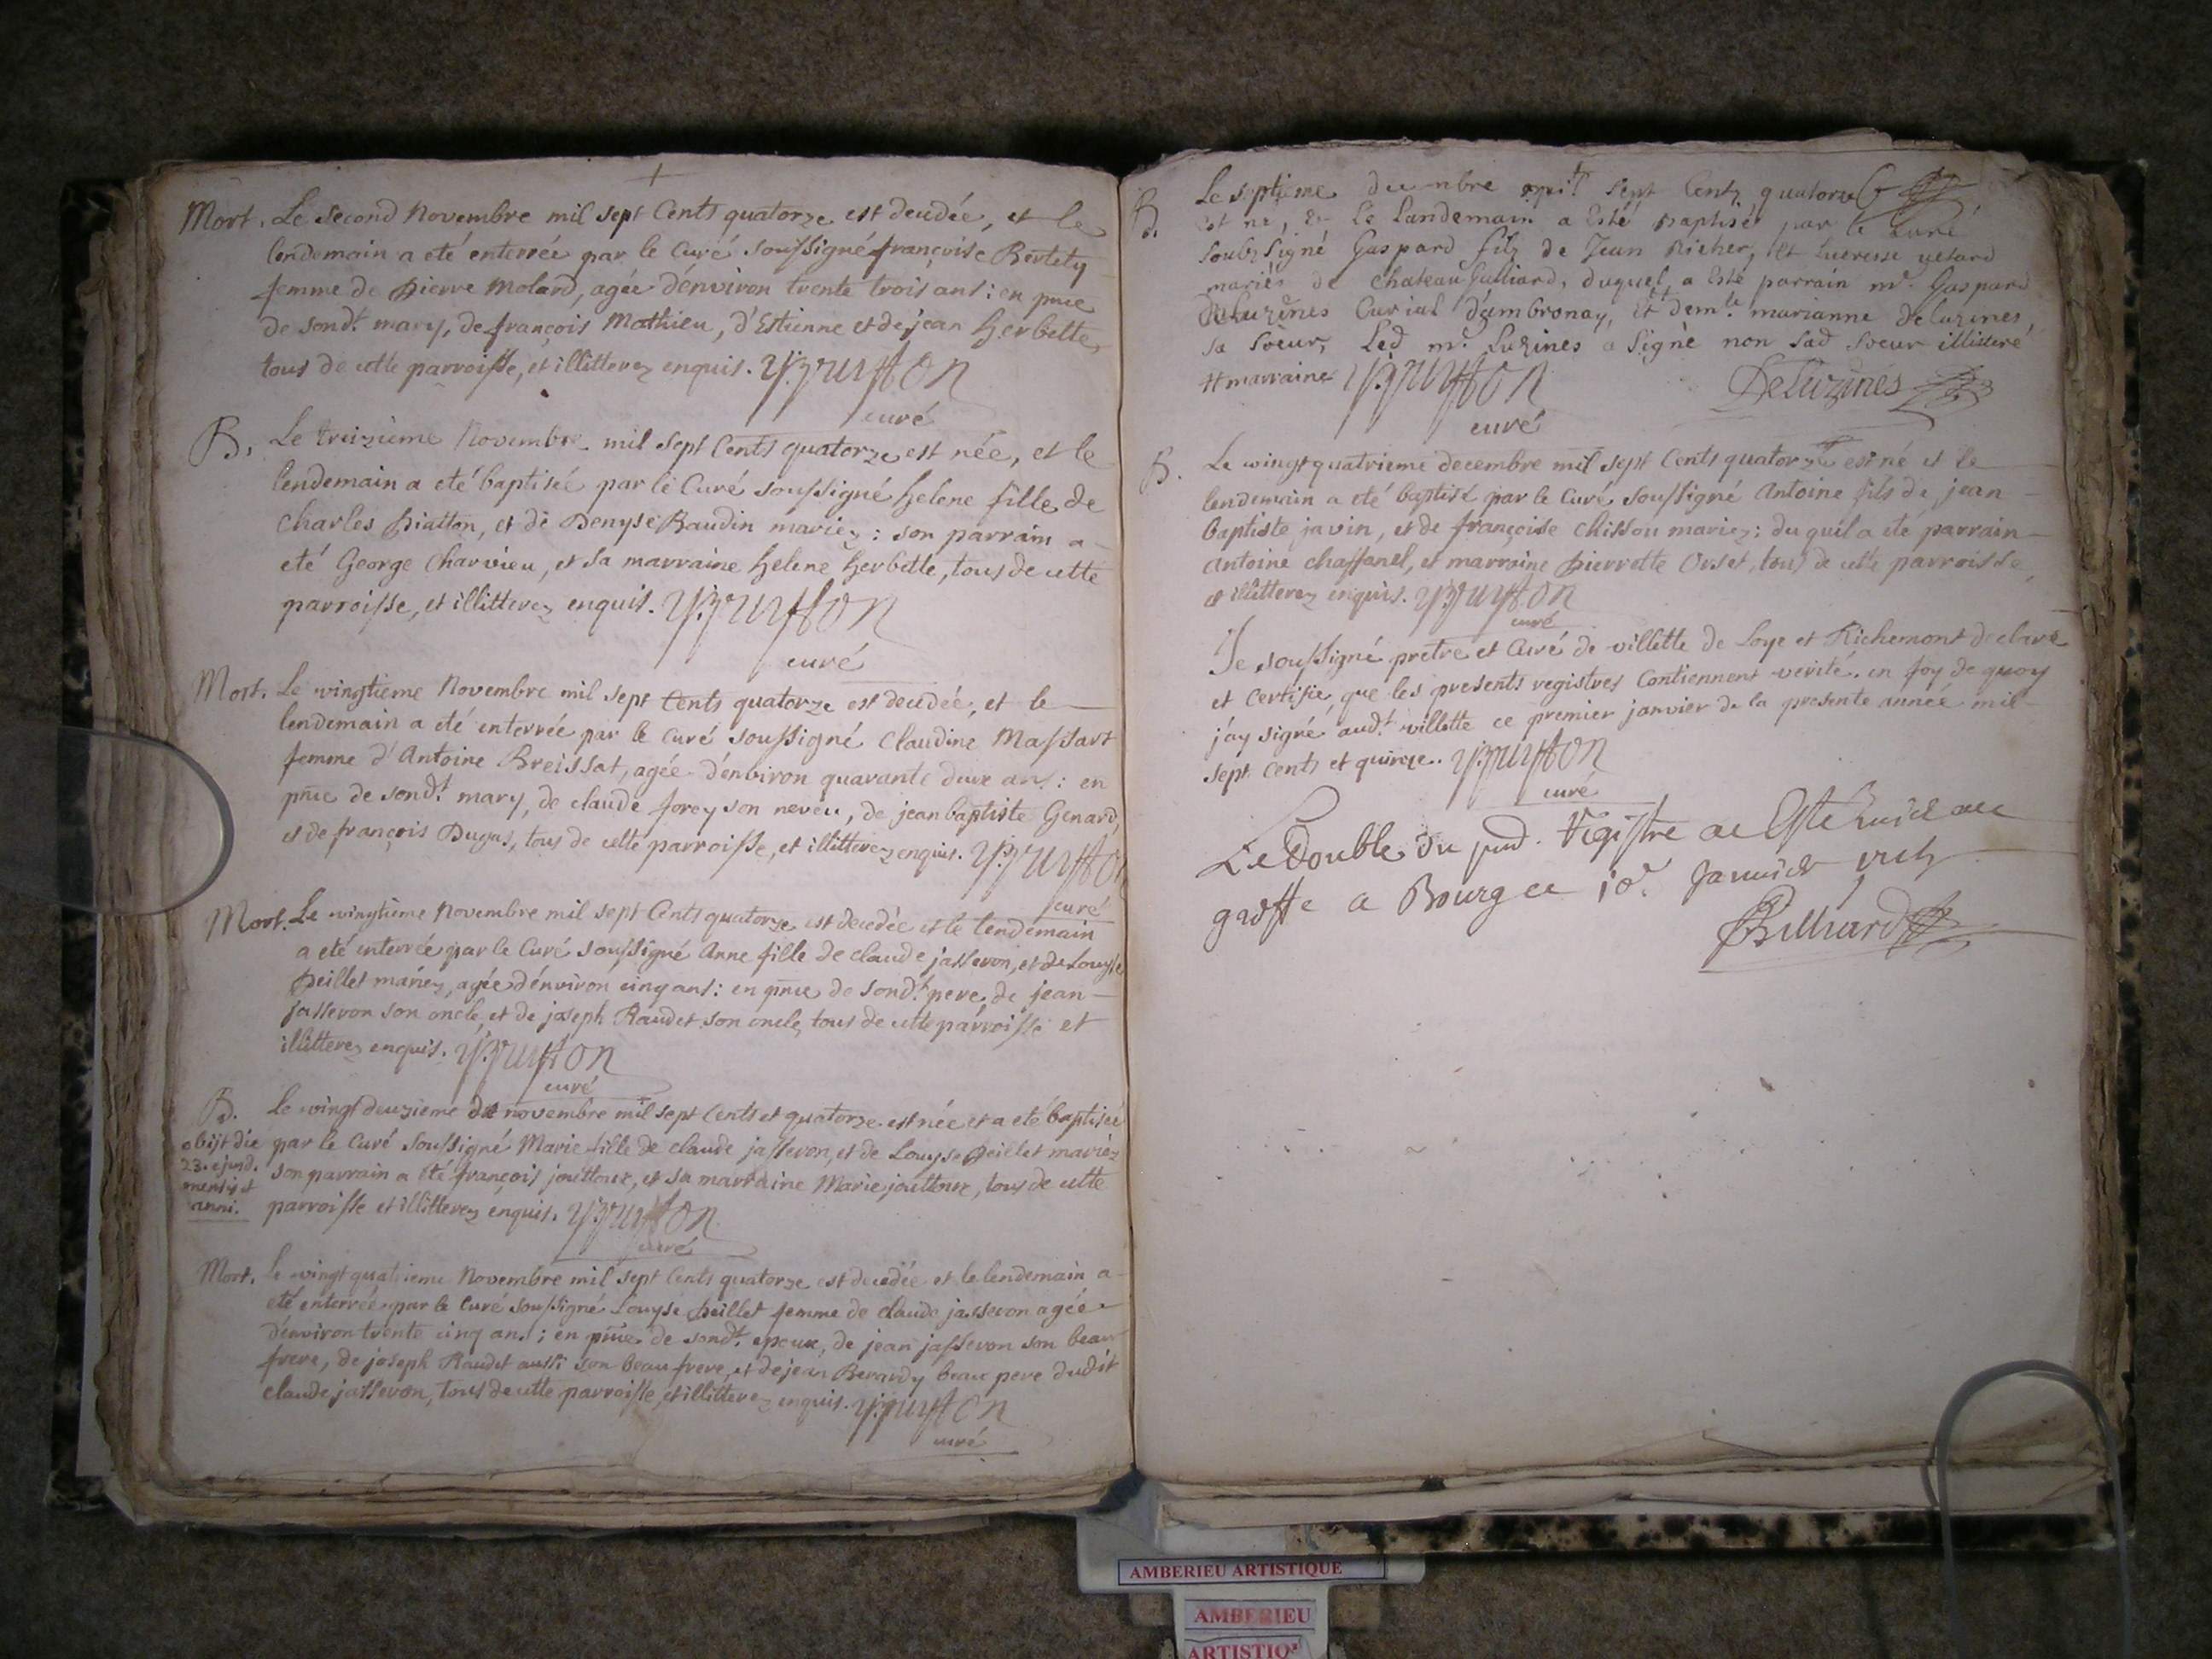 Mort. Le second Novembre mil sept Cents quatorze est decedée, et le
lendemain a eté enterrée par le Curé soussigné françoise
femme de pierre Molard, agée d'environ trente trois ans: en pnce
de sond.t mary, de françois Mathieu, d'Estienne et de jean herbette
tous de cette parroisse, et illitterez enquis.
curé
B. Le treizieme Novembre mil sept Cents quatorze est née, et le
lendemain a eté baptisée par le Curé soussigné helene fille de
Charles piatton, et de Denyse Baudin mariez: son parrain a
eté George Charvieu, et sa marraine helene herbette, tous de cette
parroisse, et illitterez enquis.
curé
Mort. Le vingtieme Novembre mil sept Cents quatorze est decedée, et le
lendemain a eté enterrée par le Curé soussigné Claudine Massart
femme d'Antoine Breissat, agée d'environ quarante deux ans: en
pnce de sond.t mary, de claude forey son neveu, de jean baptiste Genard,
et de françois Dugas, tous de cette parroisse, et illitterez enquis.
curé
Mort. Le vingtieme Novembre mil sept Cents quatorze est decedée et le lendemain
a eté enterrée par le Curé soussigné Anne fille de claude jasseron, et de Louyse
peillet mariez, agée d'environ cinq ans: en pnce de sond.t pere, de jean
jasseron son oncle, et de joseph Raudet son oncle, tous de cette parroisse et
illitterez enquis.
curé
B. Le vingt deuzieme de novembre mil sept Cents et quatorze est née et a eté baptisée
obijt die par le Curé soussigné Marie fille de claude jasseron, et de Louyse peillet mariez
23. ejusd. son parrain a eté françois jouttoux, et sa marraine Marie jouttoux, tous de cette
mensis et parroisse et illitterez enquis.
anni.
curé
Mort. Le vingt quatrieme Novembre mil sept Cents quatorze est decedée et le lendemain a
eté enterrée par le Curé soussigné Louyse peillet femme de claude jasseron agée
d'environ trente cinq ans; en pnce de sond.t epoux, de jean jasseron son beau
frere, de joseph Raudet aussi son beau frere, et de jean Berardy beau pere dudit
claude jasseron, tous de cette parroisse, et illitterez enquis.
curé
B. Le septieme mil sept Cents quatorze
est né, et le Landemain a Esté baptisé par le Curé
soubzsigné Gaspard filz de Jean Richer, et Lucresse
mariés de Chateau Gailliard, duquel a Esté parrain mr. Gaspard
Deluzines Curial d'ambronay, Et dem.le marianne deluzines,
sa soeur, Led mr. Luzines a signé non sad soeur illitteré
marraine
Deluzines
curé
B. Le vingt quatrieme decembre mil sept Cents quatorze est né et le
lendemain a eté baptisé par le Curé soussigné Antoine fils de jean
baptiste javin, et de françoise Chissou mariez: du quil a eté parrain
Antoine chassanel, et marraine pierrette Orset, tous de cette parroisse,
et illitterez enquis.
curé
Je soussigné pretre et Curé de villette de Loye et Richemont declare
et certifie, que les presents registres Contiennent verité. en foy de quoy
j'ay signé aud.t villette ce premier janvier de la presente année mil
sept cents et quinze.
curé
Le Double du Registre a Esté au
greffe a Bourg ce 10e Janvier
Billiard
AMBERIEU ARTISTIQUE
AMBERIEU
ARTISTIQ